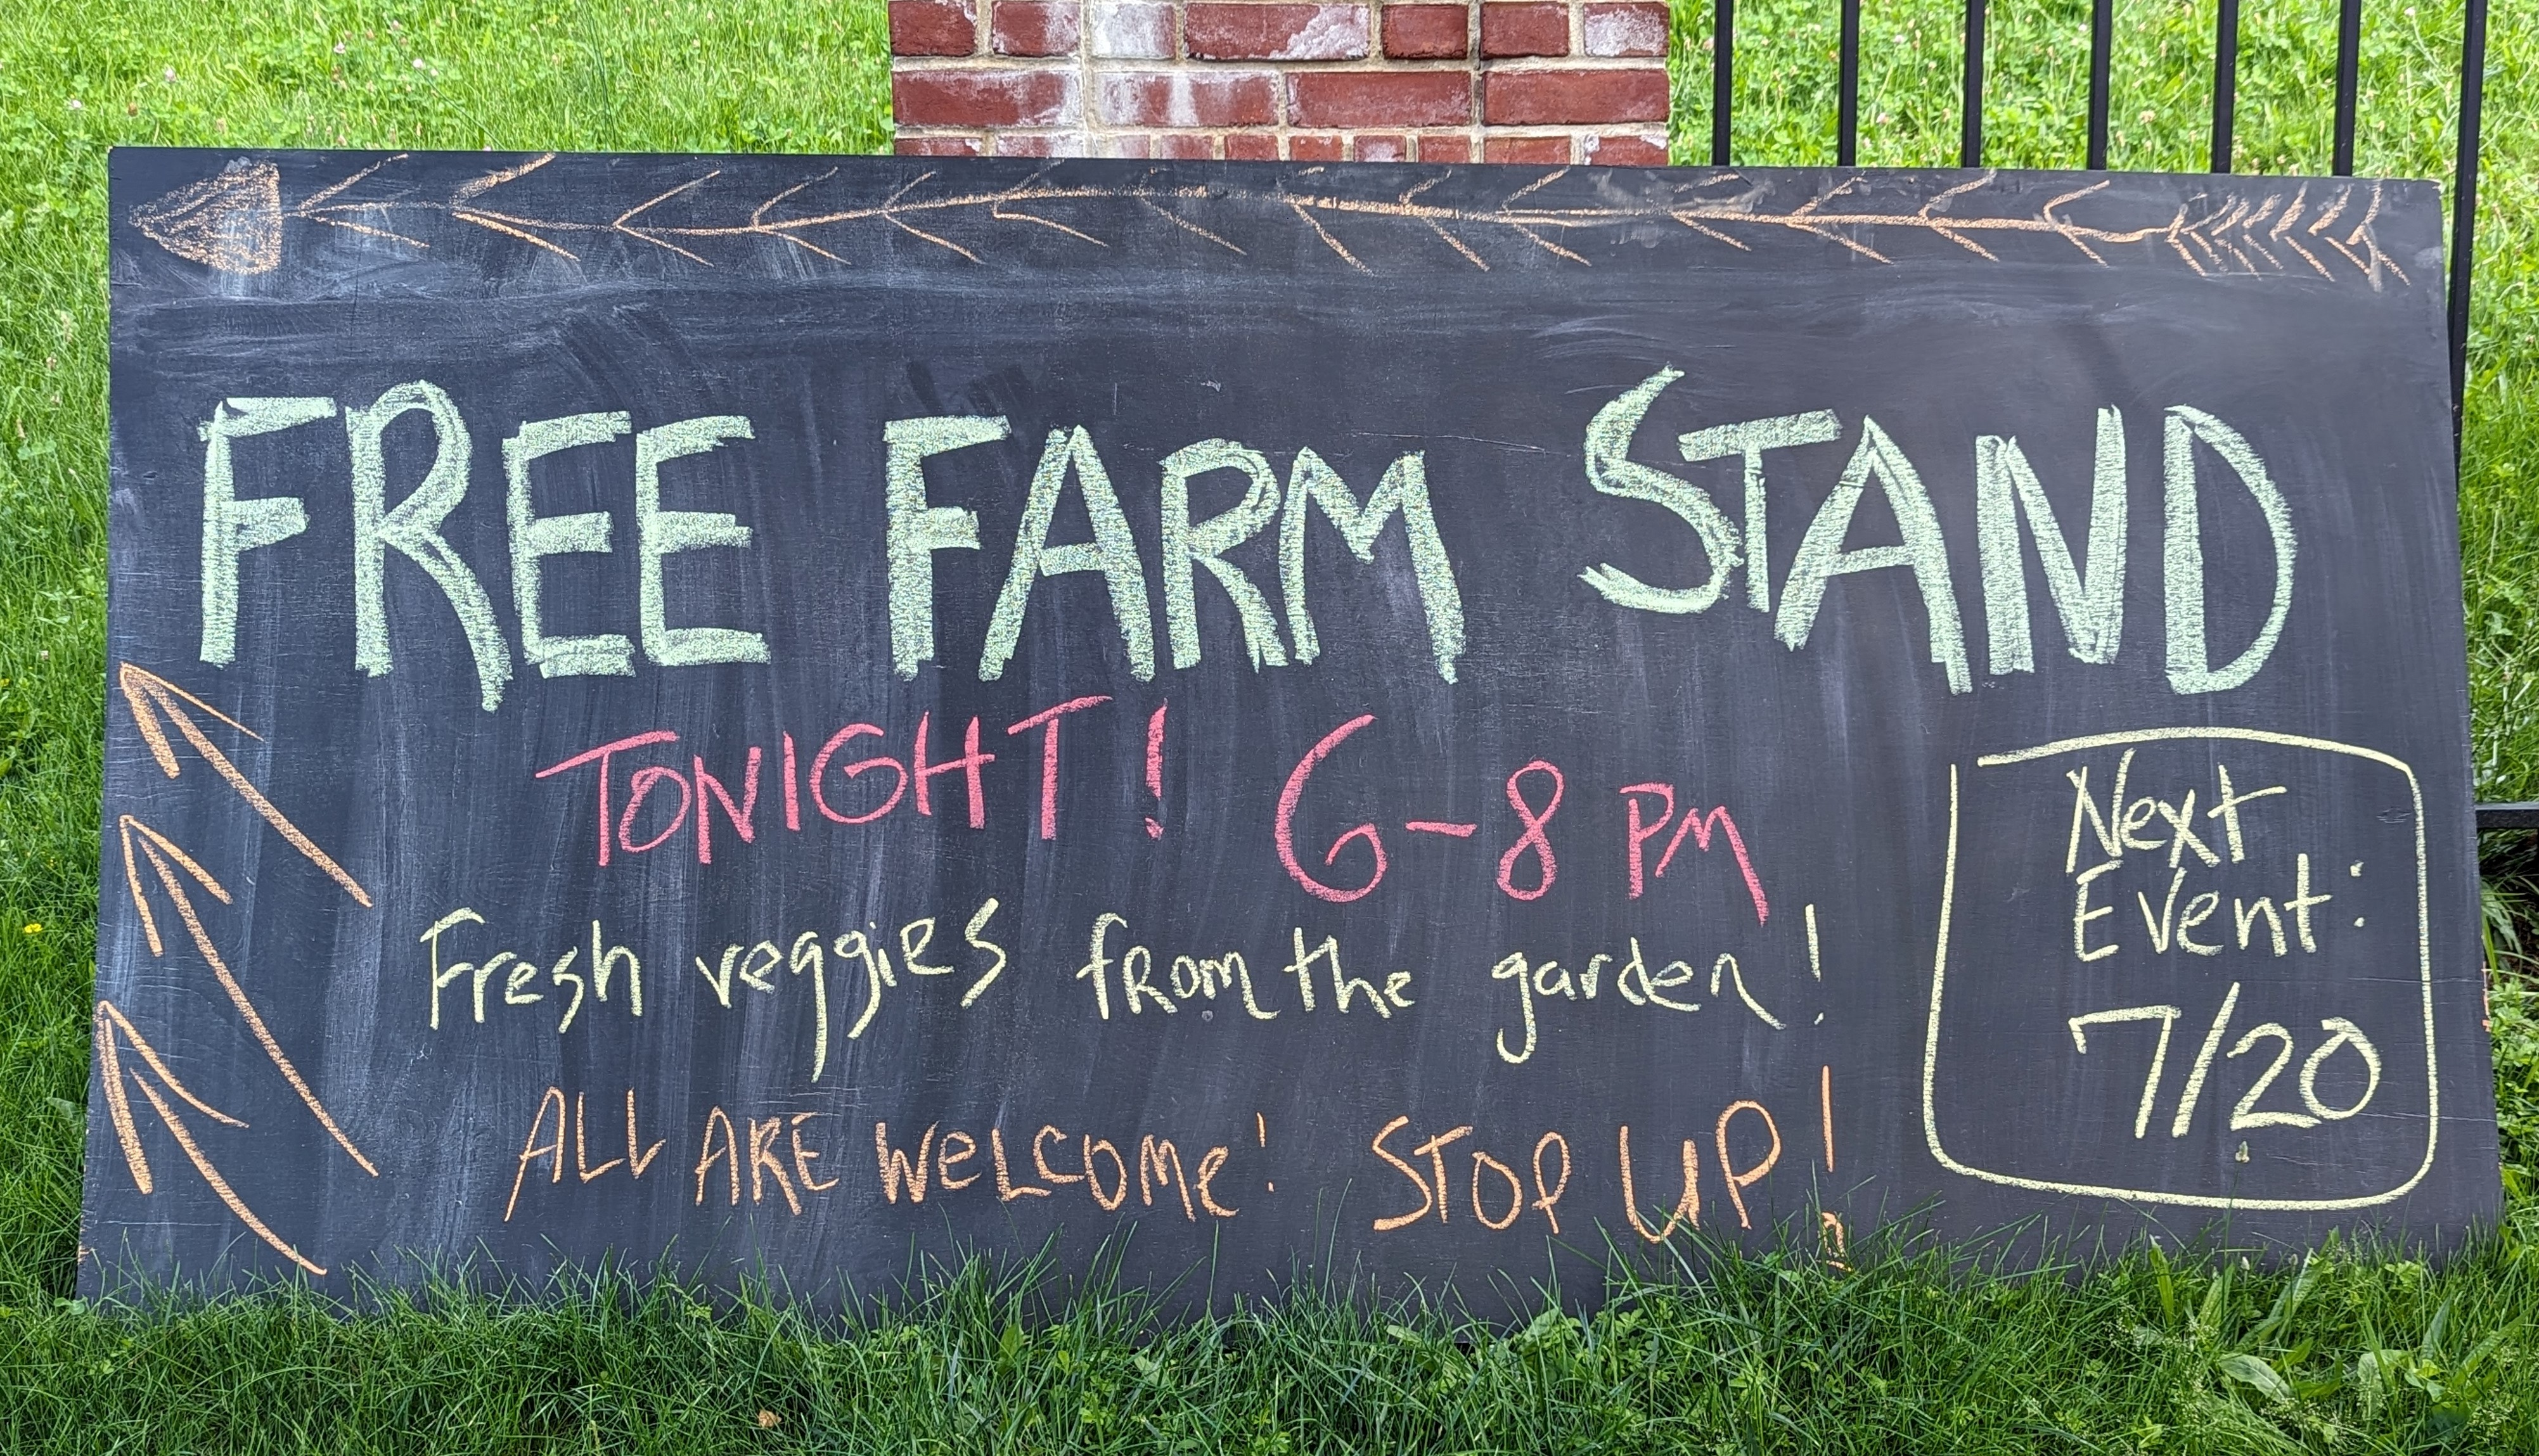 FREE FARM STAND
TONIGHT! 6-8 PM
Fresh veggies from the garden!
ALL ARE WELCOME! STOP UP!
Next
Event:
7/20